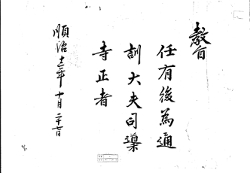 教旨
任有後為通
訓大夫司導
寺正者
順治十二年十月二十七日